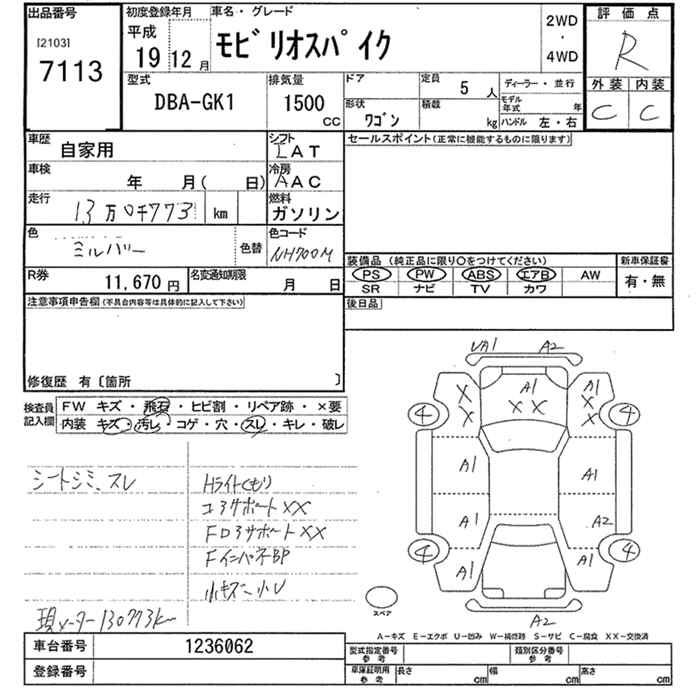 出品番号
[2103]
7113
初度登録年月
平成
19 12月
車名・グレード
モビリオスパイク
2WD
・
4WD
評価点
R
外装 内装
C C
型式
DBA-GK1
排気量
1500
CC
ドア
形状
ワゴン
定員
5 人
積載
kg
ディーラー・並行
モデル年式 年
ハンドル 左・右
車歴
自家用
シフト
IAT
車検
年 月( 日)
冷房
AAC
走行
13万0千773 km
燃料
ガソリン
色
ミルハリー
色替
色コード
NH700M
R券
11,670 円
名変通知期限
月 日
セールスポイント(正常に機能するものに限ります)
装備品 (純正品に限り○をつけてください)
PS PW ABS エアB AW
SR ナビ TV カワ
新車保証書
有・無
後日品
注意事項申告欄(不具合内容等は具体的に記入して下さい)
修復歴 有〔箇所 〕
検査員記入欄
FW キズ・飛石・ヒビ割・リペア跡・×要
内装 キズ・汚レ・コゲ・穴・スレ・キレ・破レ
シートシミ、スレ
Hライトくもり
コアサポートXX
Fインパネ BP
小キズ、小U
現メーター130773k
UA1 A2
X X
A1
X X
A1
X X
4 4
A1 A1
A1 A2
4 4
A1 A1
A2
スペア
A-キズ E-エクボ U-凹み W-補修跡 S-サビ C-腐食 XX-交換済
車台番号
1236062
登録番号
型式指定番号
参考
類別区分番号
参考
車庫証明用
参考
長さ cm
幅 cm
高さ cm